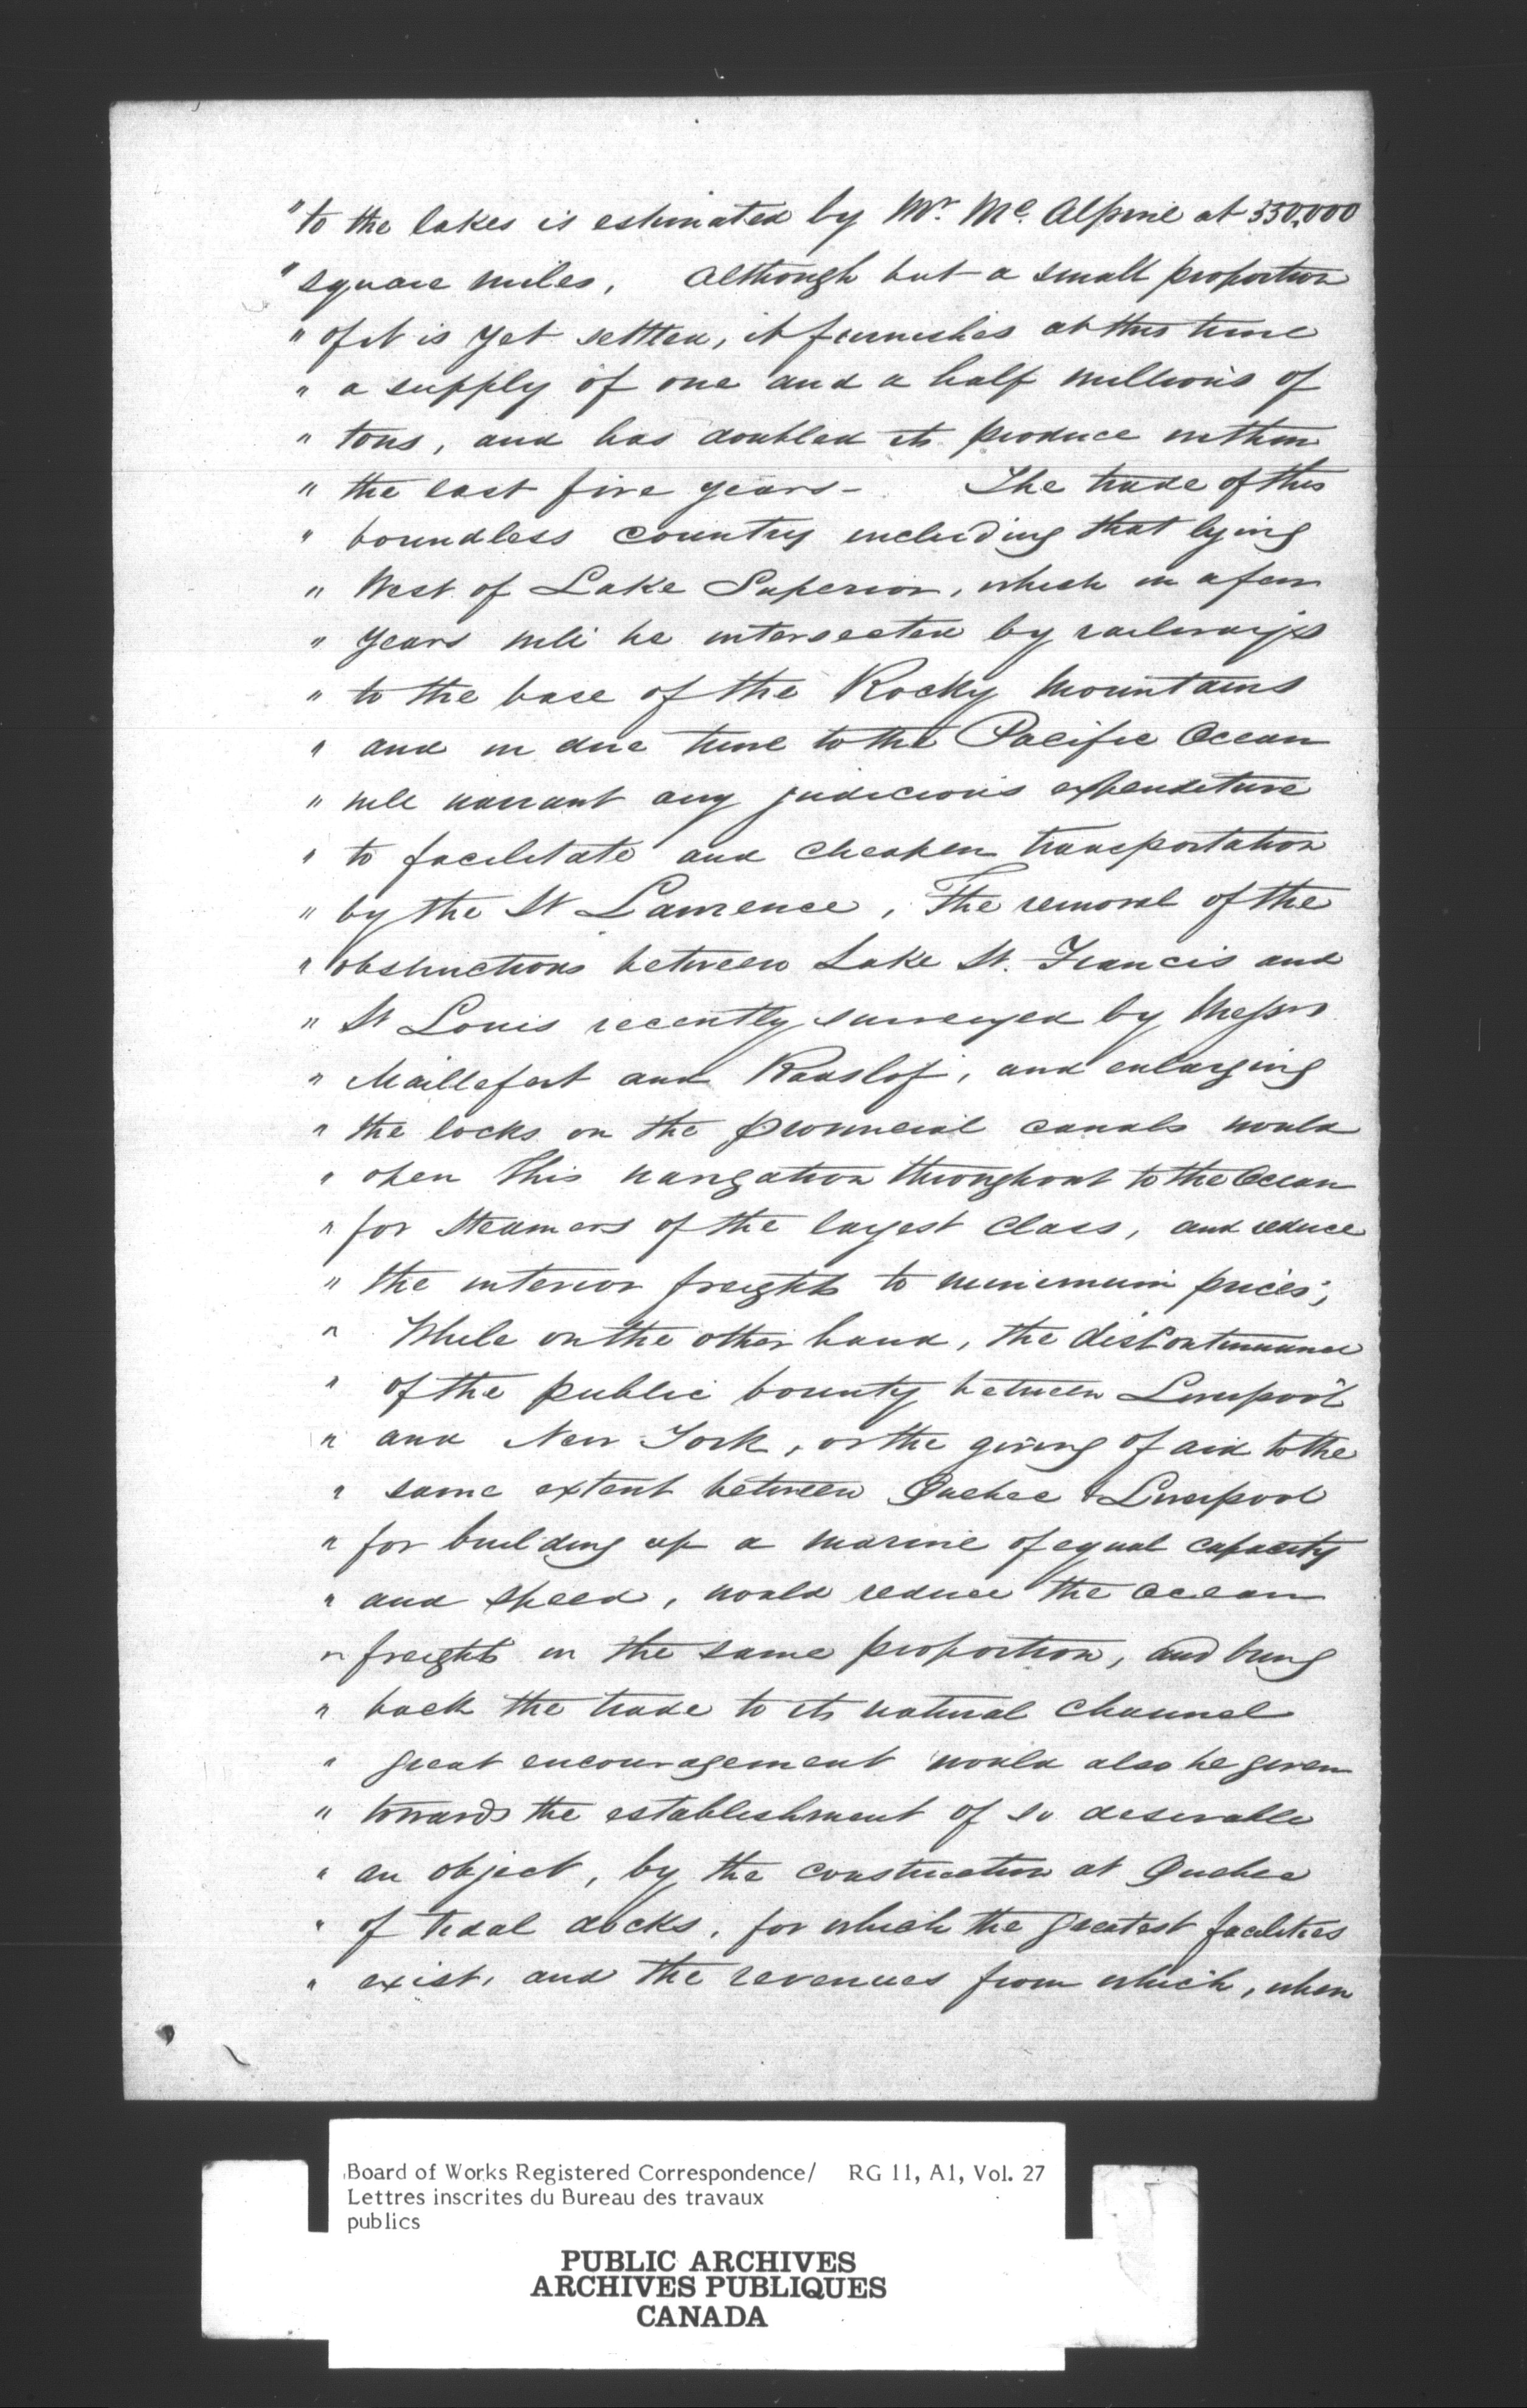 "to the lakes is estimated by Mr. Mc. Alpine at 330,000
" square miles, Although but a small proportion
" of it is yet settled, it furnishes at this time
" a supply of one and a half millions of
" tons, and has doubled its produce within
" the last five years -. The trade of this
" boundless country including that lying
" West of Lake Superior, which in a few
" Years will be intersected by railways
" to the base of the Rocky Mountains
" and in due time to the Pacific Ocean
" will warrant any judicious expenditure
" to facilitate and cheapen transportation
" by the St Lawrence, The removal of the
" obstructions between Lake St. Francis and
" St Louis recently surveyed by Messrs
" Maillefert and Raaslof, and enlarging
" the locks on the provincial canals would
" open this navigation throughout to the Ocean
" for Steamers of the largest Class, and reduce
" the interior freights to minimum prices;
" While on the other hand, the discontinuance
" of the public bounty between Liverpool
" and New York, or the giving of aid to the
" same extent between Quebec & Liverpool
" for building up a marine of equal capacity
" and speed, would reduce the ocean
" freights in the same proportion, and bring
" back the trade to its natural channel
" great encouragement would also be given
" towards the establishment of so desirable
" an object, by the construction at Quebec
" of tidal docks, for which the greatest facilities
" exist, and the revenues from which, when
Board of Works Registered Correspondence/ RG 11, A1, Vol. 27
Lettres inscrites du Bureau des travaux
publics
PUBLIC ARCHIVES
ARCHIVES PUBLIQUES
CANADA